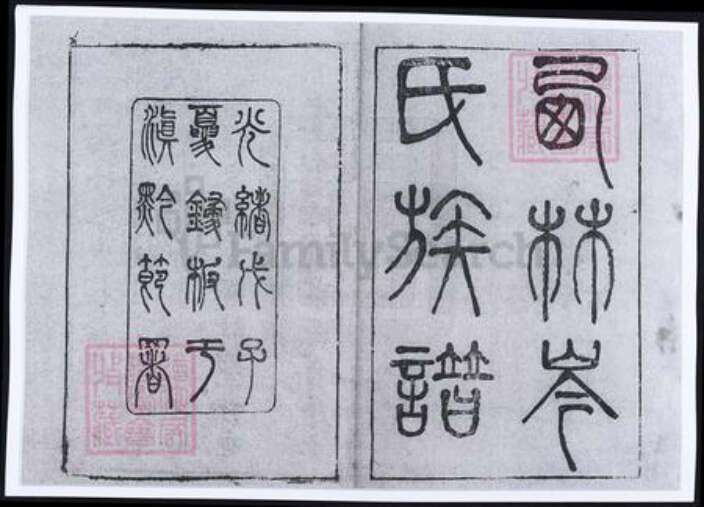 西林岑
氏族譜
光緒戊子
夏鋟板于
滇黔節署
FamilySearch